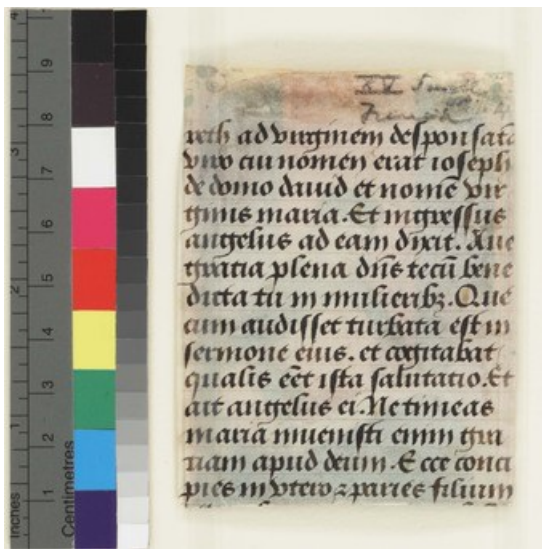 XV
French
reth ad virginem desponsata
viro cui nomen erat ioseph
de domo dauid et nomē vir
ginis maria. Et ingressus
angelus ad eam dixit. Aue
gratia plena dn̄s tecū bene
dicta tu in mulieribꝫ. Que
cum audisset turbata est in
sermone eius. et cogitabat
qualis eēt ista salutatio. Et
ait angelus ei. Ne timeas
maria inuenisti enim gra
tiam apud deum. Ecce conci
pies in vtero ⁊ paries filium
4
3
2
1
Inches
9
8
7
6
5
4
3
2
1
Centimetres